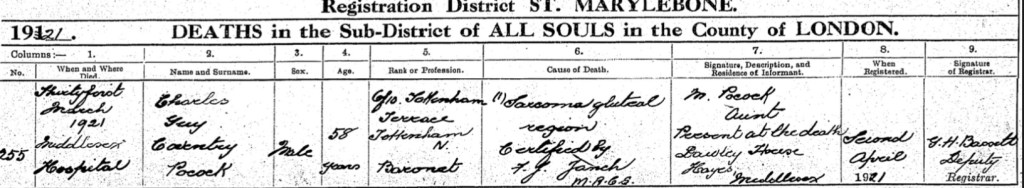 Registration District ST. MARYLEBONE.
1921. DEATHS in the Sub-District of ALL SOULS in the County of LONDON.
Columns:— 1. 2. 3. 4. 5. 6. 7. 8. 9.
No. When and Where Died. Name and Surname. Sex. Age. Rank or Profession. Cause of Death. Signature, Description, and Residence of Informant. When Registered. Signature of Registrar.
Thirtyfirst Charles Tottenham (1) Sarcoma gluteal M. Pocock
March Guy Terrace region Aunt
1921 58 Tottenham Present at the death Second G.H. Bassett
Middlesex Coventry Male N. Certified by Dawley House April Deputy
255 Hospital Pocock years Baronet F. J. M.R.C.S. Hayes Middlesex 1921 Registrar.